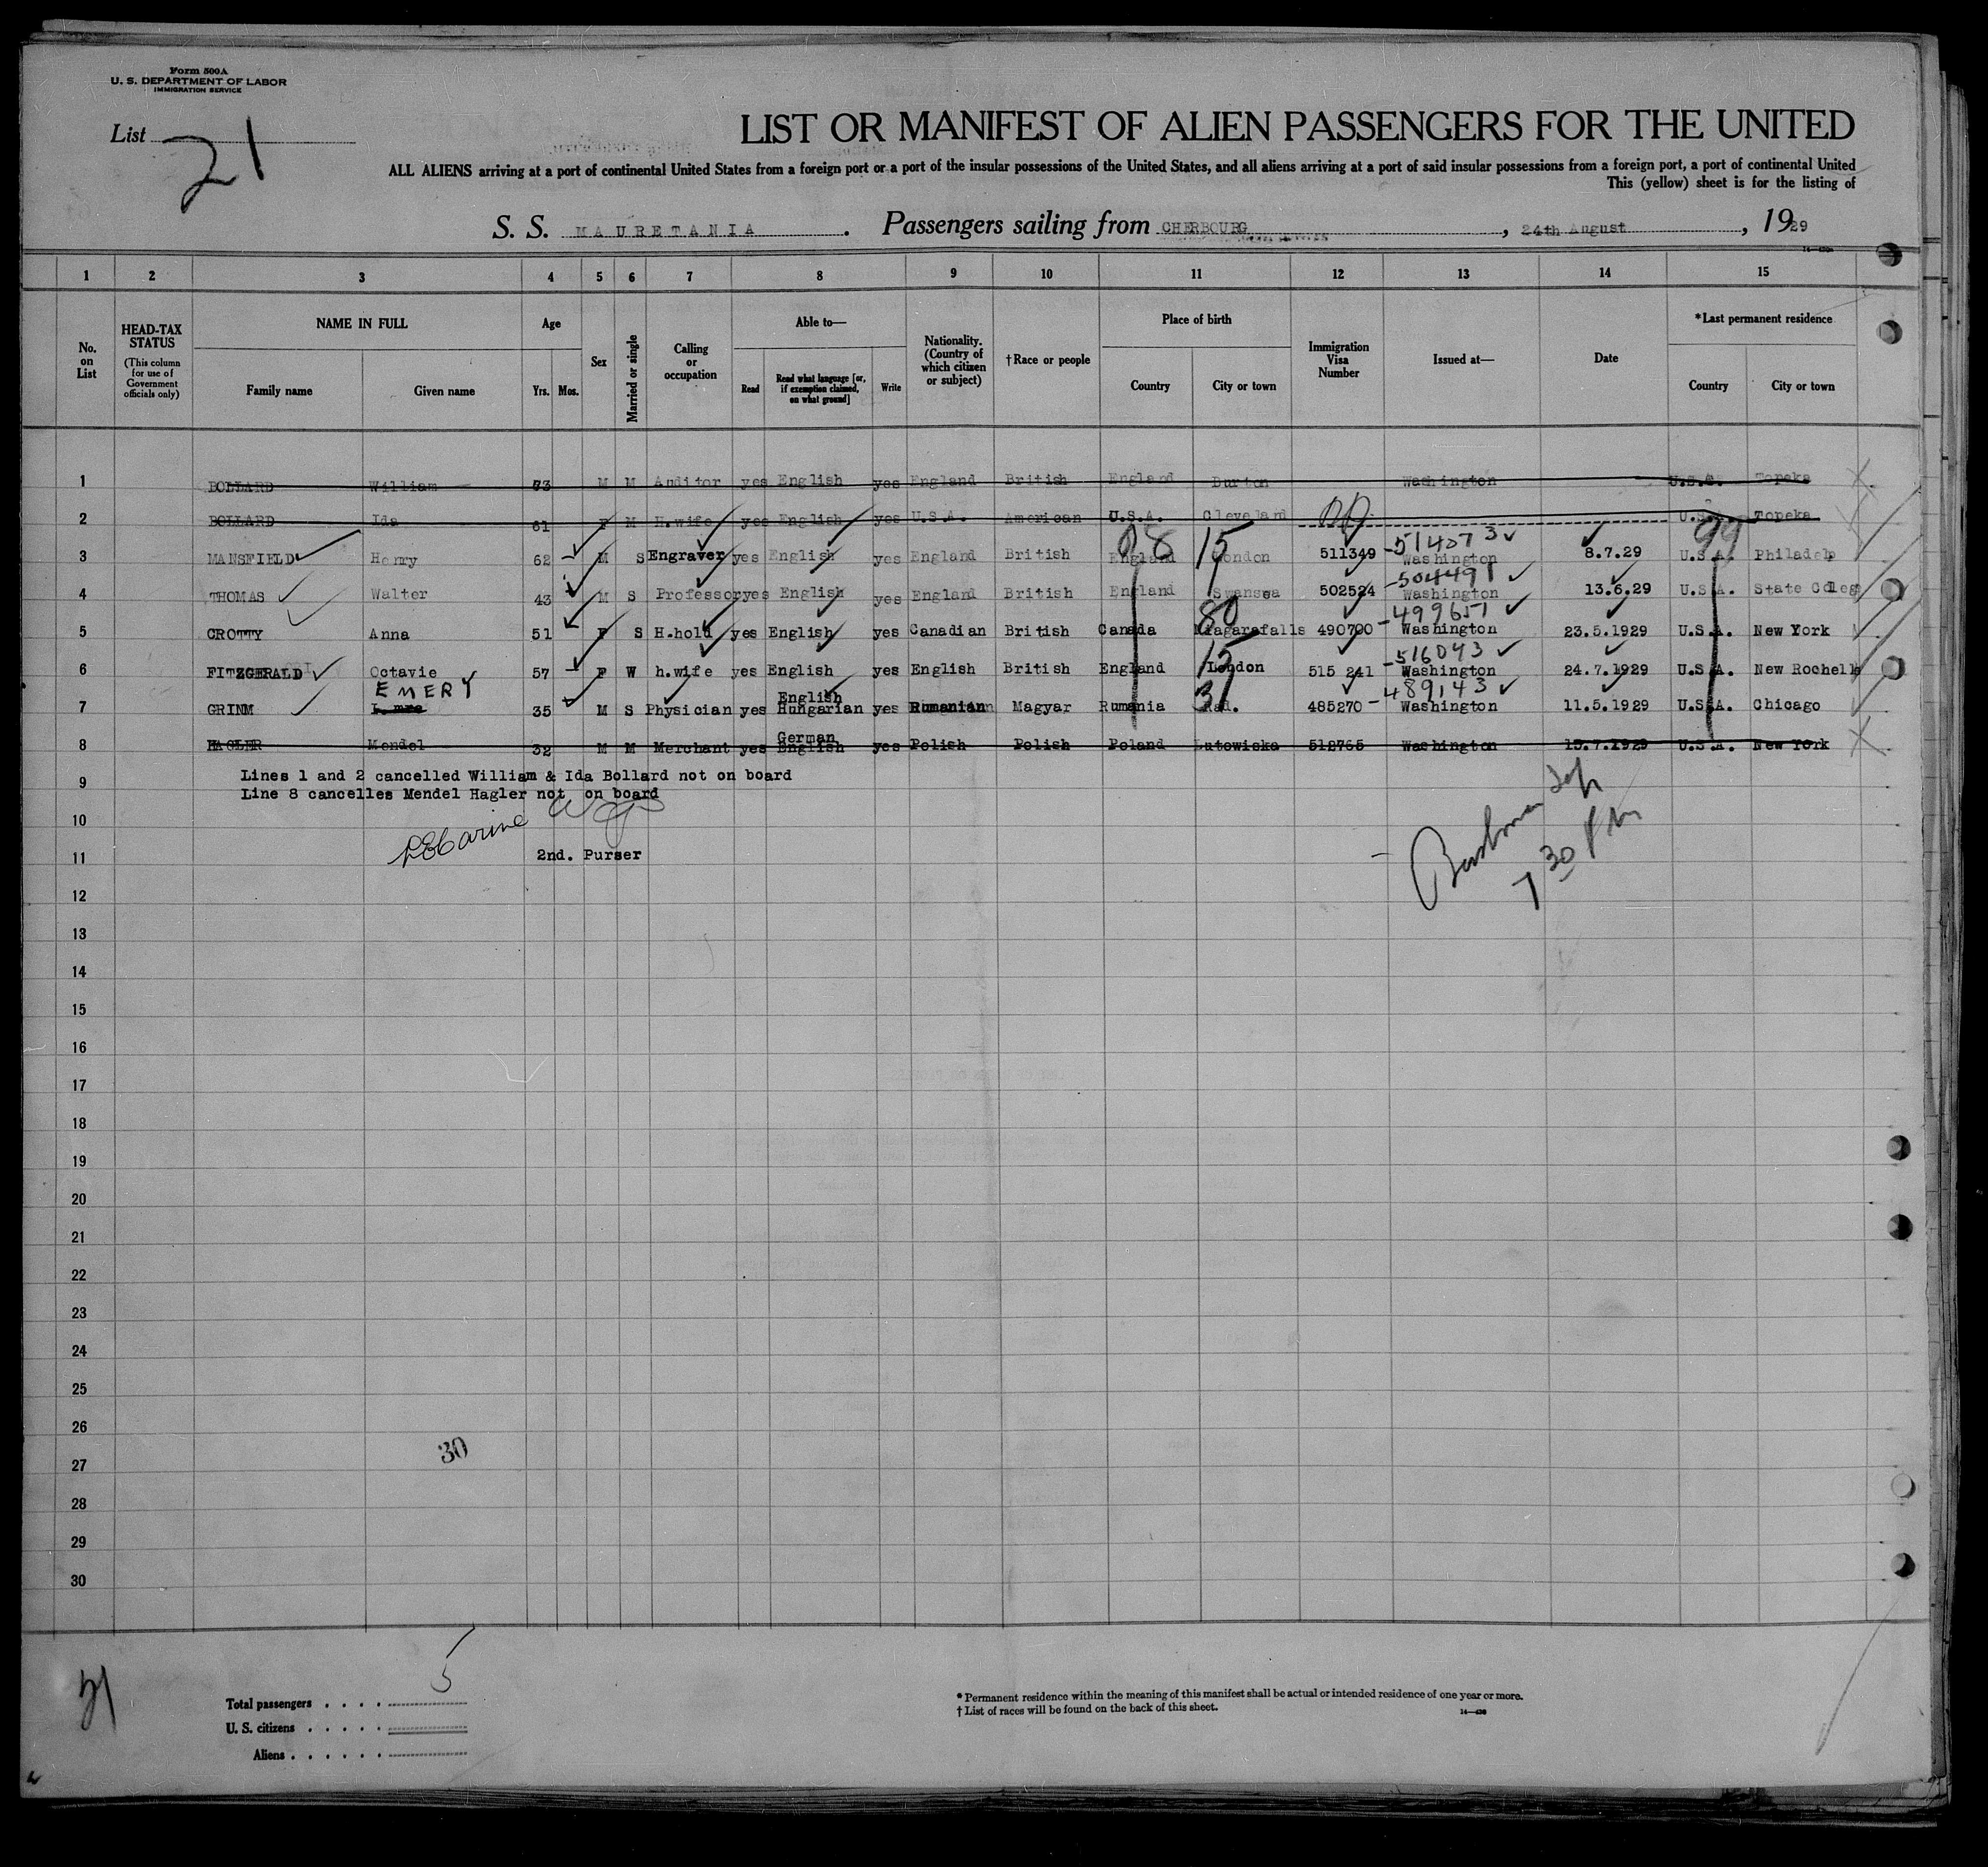 Form 500A
U. S. DEPARTMENT OF LABOR
IMMIGRATION SERVICE
List 21
LIST OR MANIFEST OF ALIEN PASSENGERS FOR THE UNITED
ALL ALIENS arriving at a port of continental United States from a foreign port or a port of the insular possessions of the United States, and all aliens arriving at a port of said insular possessions from a foreign port, a port of continental United
This (yellow) sheet is for the listing of
S. S. MAURETANIA . Passengers sailing from CHERBOURG , 24th August , 1929
1 2 3 4 5 6 7 8 9 10 11 12 13 14 15
No. on List
HEAD-TAX STATUS (This column for use of Government officials only)
NAME IN FULL Family name Given name
Age Yrs. Mos.
Sex
Married or single
Calling or occupation
Able to— Read Read what language [or, if exemption claimed, on what ground] Write
Nationality. (Country of which citizen or subject)
†Race or people
Place of birth Country City or town
Immigration Visa Number
Issued at—
Date
*Last permanent residence Country City or town
1 BOLLARD William 73 M M Auditor yes English yes England British England Burton Washington U.S.A. Topeka
2 BOLLARD Ida 61 F M H.wife yes English yes U.S.A. American U.S.A. Cleveland U.S. Topeka
08 15 -514073 99
3 MANSFIELD Henry 62 M S Engraver yes English yes England British England London 511349 Washington 8.7.29 U.S.A. Philadelp
-504491
4 THOMAS Walter 43 M S Professor yes English yes England British England Swansea 502524 Washington 13.6.29 U.S.A. State Colleg
80 -499651
5 CROTTY Anna 51 F S H.hold yes English yes Canadian British Canada Niagarafalls 490700 Washington 23.5.1929 U.S.A. New York
15 -516043
6 FITZGERALD Octavie 57 F W h.wife yes English yes English British England London 515 241 Washington 24.7.1929 U.S.A. New Rochelle
EMERY English 31 -489143
7 GRINM Imre 35 M S Physician yes Hungarian yes Rumanian Magyar Rumania 485270 Washington 11.5.1929 U.S.A. Chicago
German
8 HAGLER Mendel 32 M M Merchant yes English yes Polish Polish Poland Lutowiska 512765 Washington 15.7.1929 U.S.A. New York
9 Lines 1 and 2 cancelled William & Ida Bollard not on board
Line 8 cancelles Mendel Hagler not on board
10
11 2nd. Purser
7 30 PM
12
13
14
15
16
17
18
19
20
21
22
23
24
25
26
30
27
28
29
30
21
Total passengers . . . . 5
U. S. citizens . . . . .
Aliens . . . . . .
* Permanent residence within the meaning of this manifest shall be actual or intended residence of one year or more.
† List of races will be found on the back of this sheet.
14—430